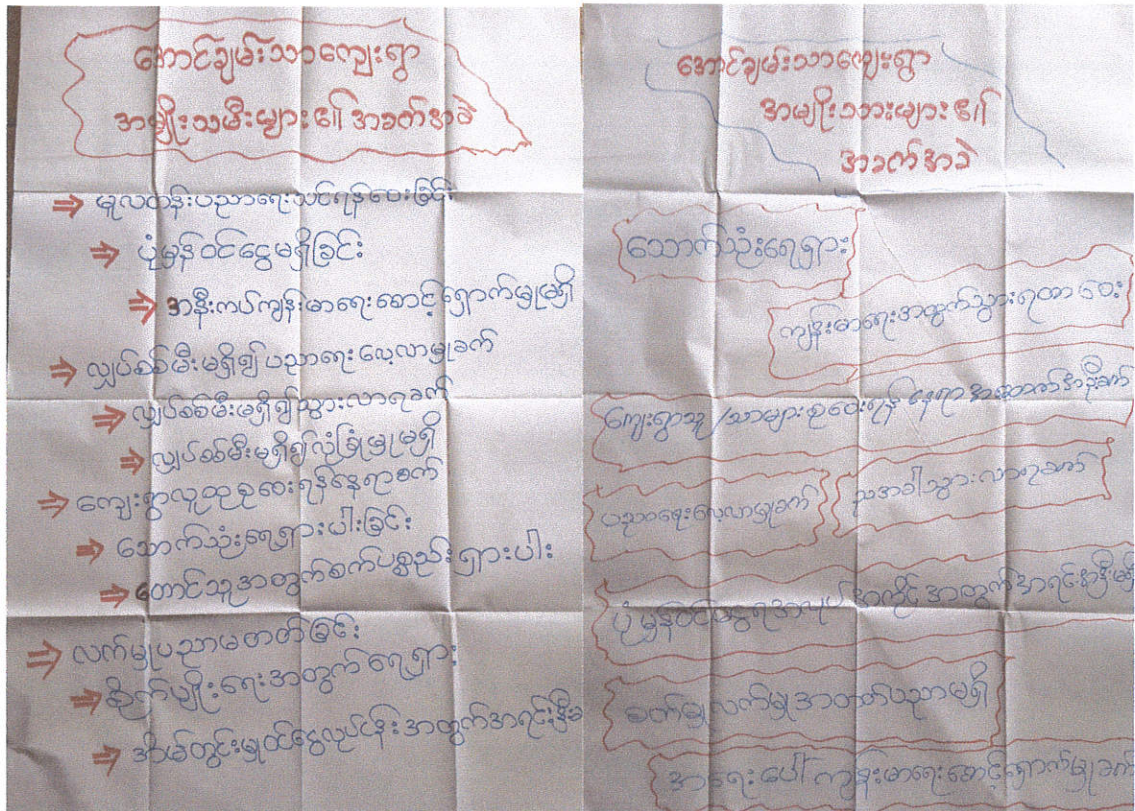 အောင်ချမ်းသာကျေးရွာ
အမျိုးသမီးများ၏ အခက်အခဲ
⇒ မူလတန်းပညာရေးသင်ရန်ဝေးခြင်း
⇒ ပုံမှန်ဝင်ငွေမရှိခြင်း
⇒ အနီးကပ်ကျန်းမာရေးစောင့်ရှောက်မှုမရှိ
⇒ လျှပ်စစ်မီးမရှိ၍ ပညာရေးလေ့လာမှုခက်
⇒ လျှပ်စစ်မီးမရှိ၍သွားလာရခက်
⇒ လျှပ်စစ်မီးမရှိ၍လုံခြုံမှုမရှိ
⇒ ကျေးရွာလူထုစုဝေးရန်နေရာခက်
⇒ သောက်သုံးရေရှားပါးခြင်း
⇒ တောင်သူအတွက်စက်ပစ္စည်းရှားပါး
⇒ လက်မှုပညာမတတ်ခြင်း
⇒ စိုက်ပျိုးရေးအတွက်ရေရှား
⇒ အိမ်တွင်းမှုဝင်ငွေလုပ်ငန်းအတွက်အရင်းနှီးမ
အောင်ချမ်းသာကျေးရွာ
အမျိုးသားများ၏
အခက်အခဲ
သောက်သုံးရေရှား
ကျန်းမာရေးအတွက်သွားရတာ ဝေး
ကျေးရွာသူ/သားများစုဝေးရန် နေရာ အဆောက်အဦခက်
ပညာရေးလေ့လာမှုခက်
ညအခါသွားလာရခက်
ပုံမှန်ဝင်ငွေရအလုပ်အကိုင်အတွက်အရင်းအနှီးမရှိ
စက်မှုလက်မှုအတတ်ပညာမရှိ
အရေးပေါ်ကျန်းမာရေးစောင့်ရှောက်မှုခက်